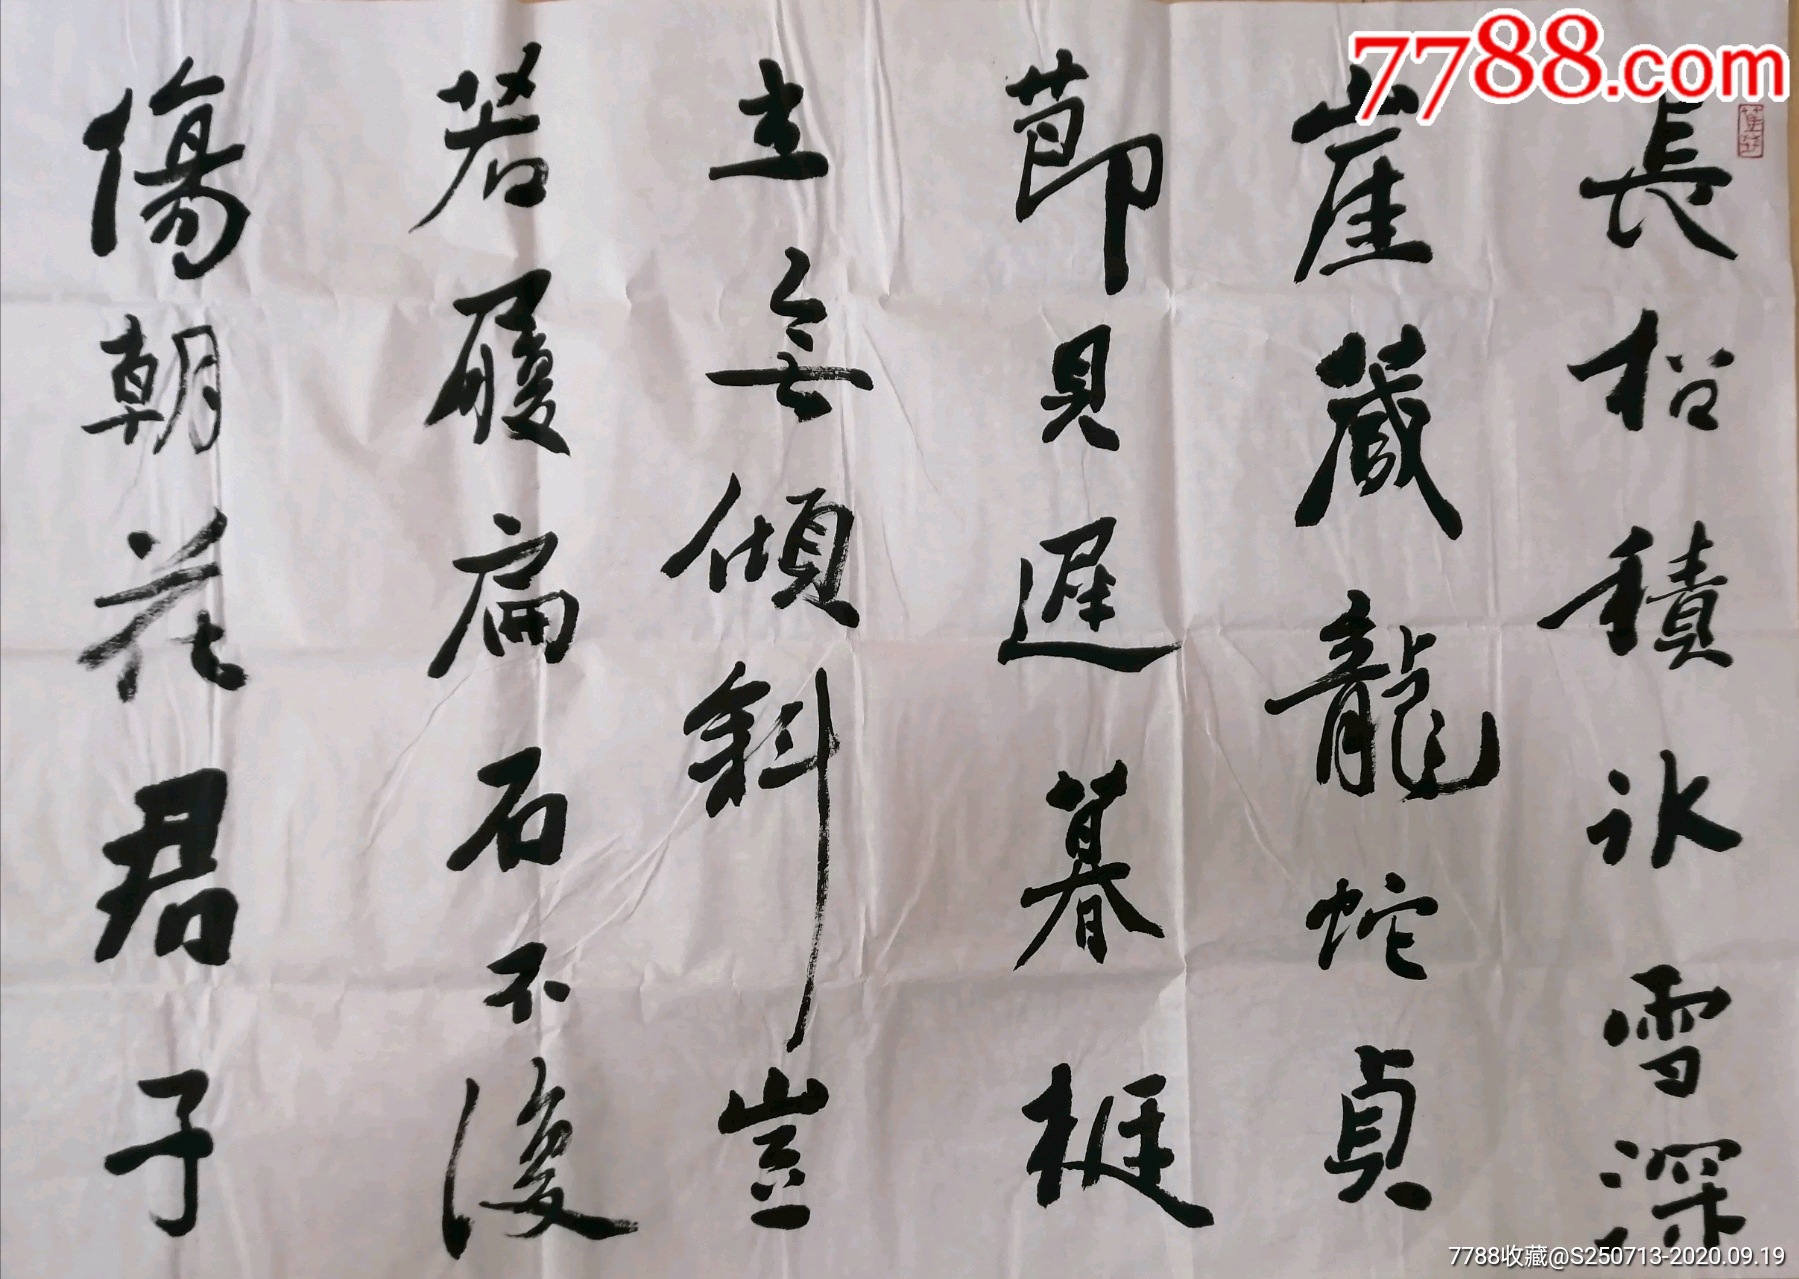 長松積氷雪深
崖蔵龍蛇貞
節見遲暮挺
立無傾斜豈
若履扁石不復
傷朝花君子
7788.com
7788收藏@S250713-2020.09.19